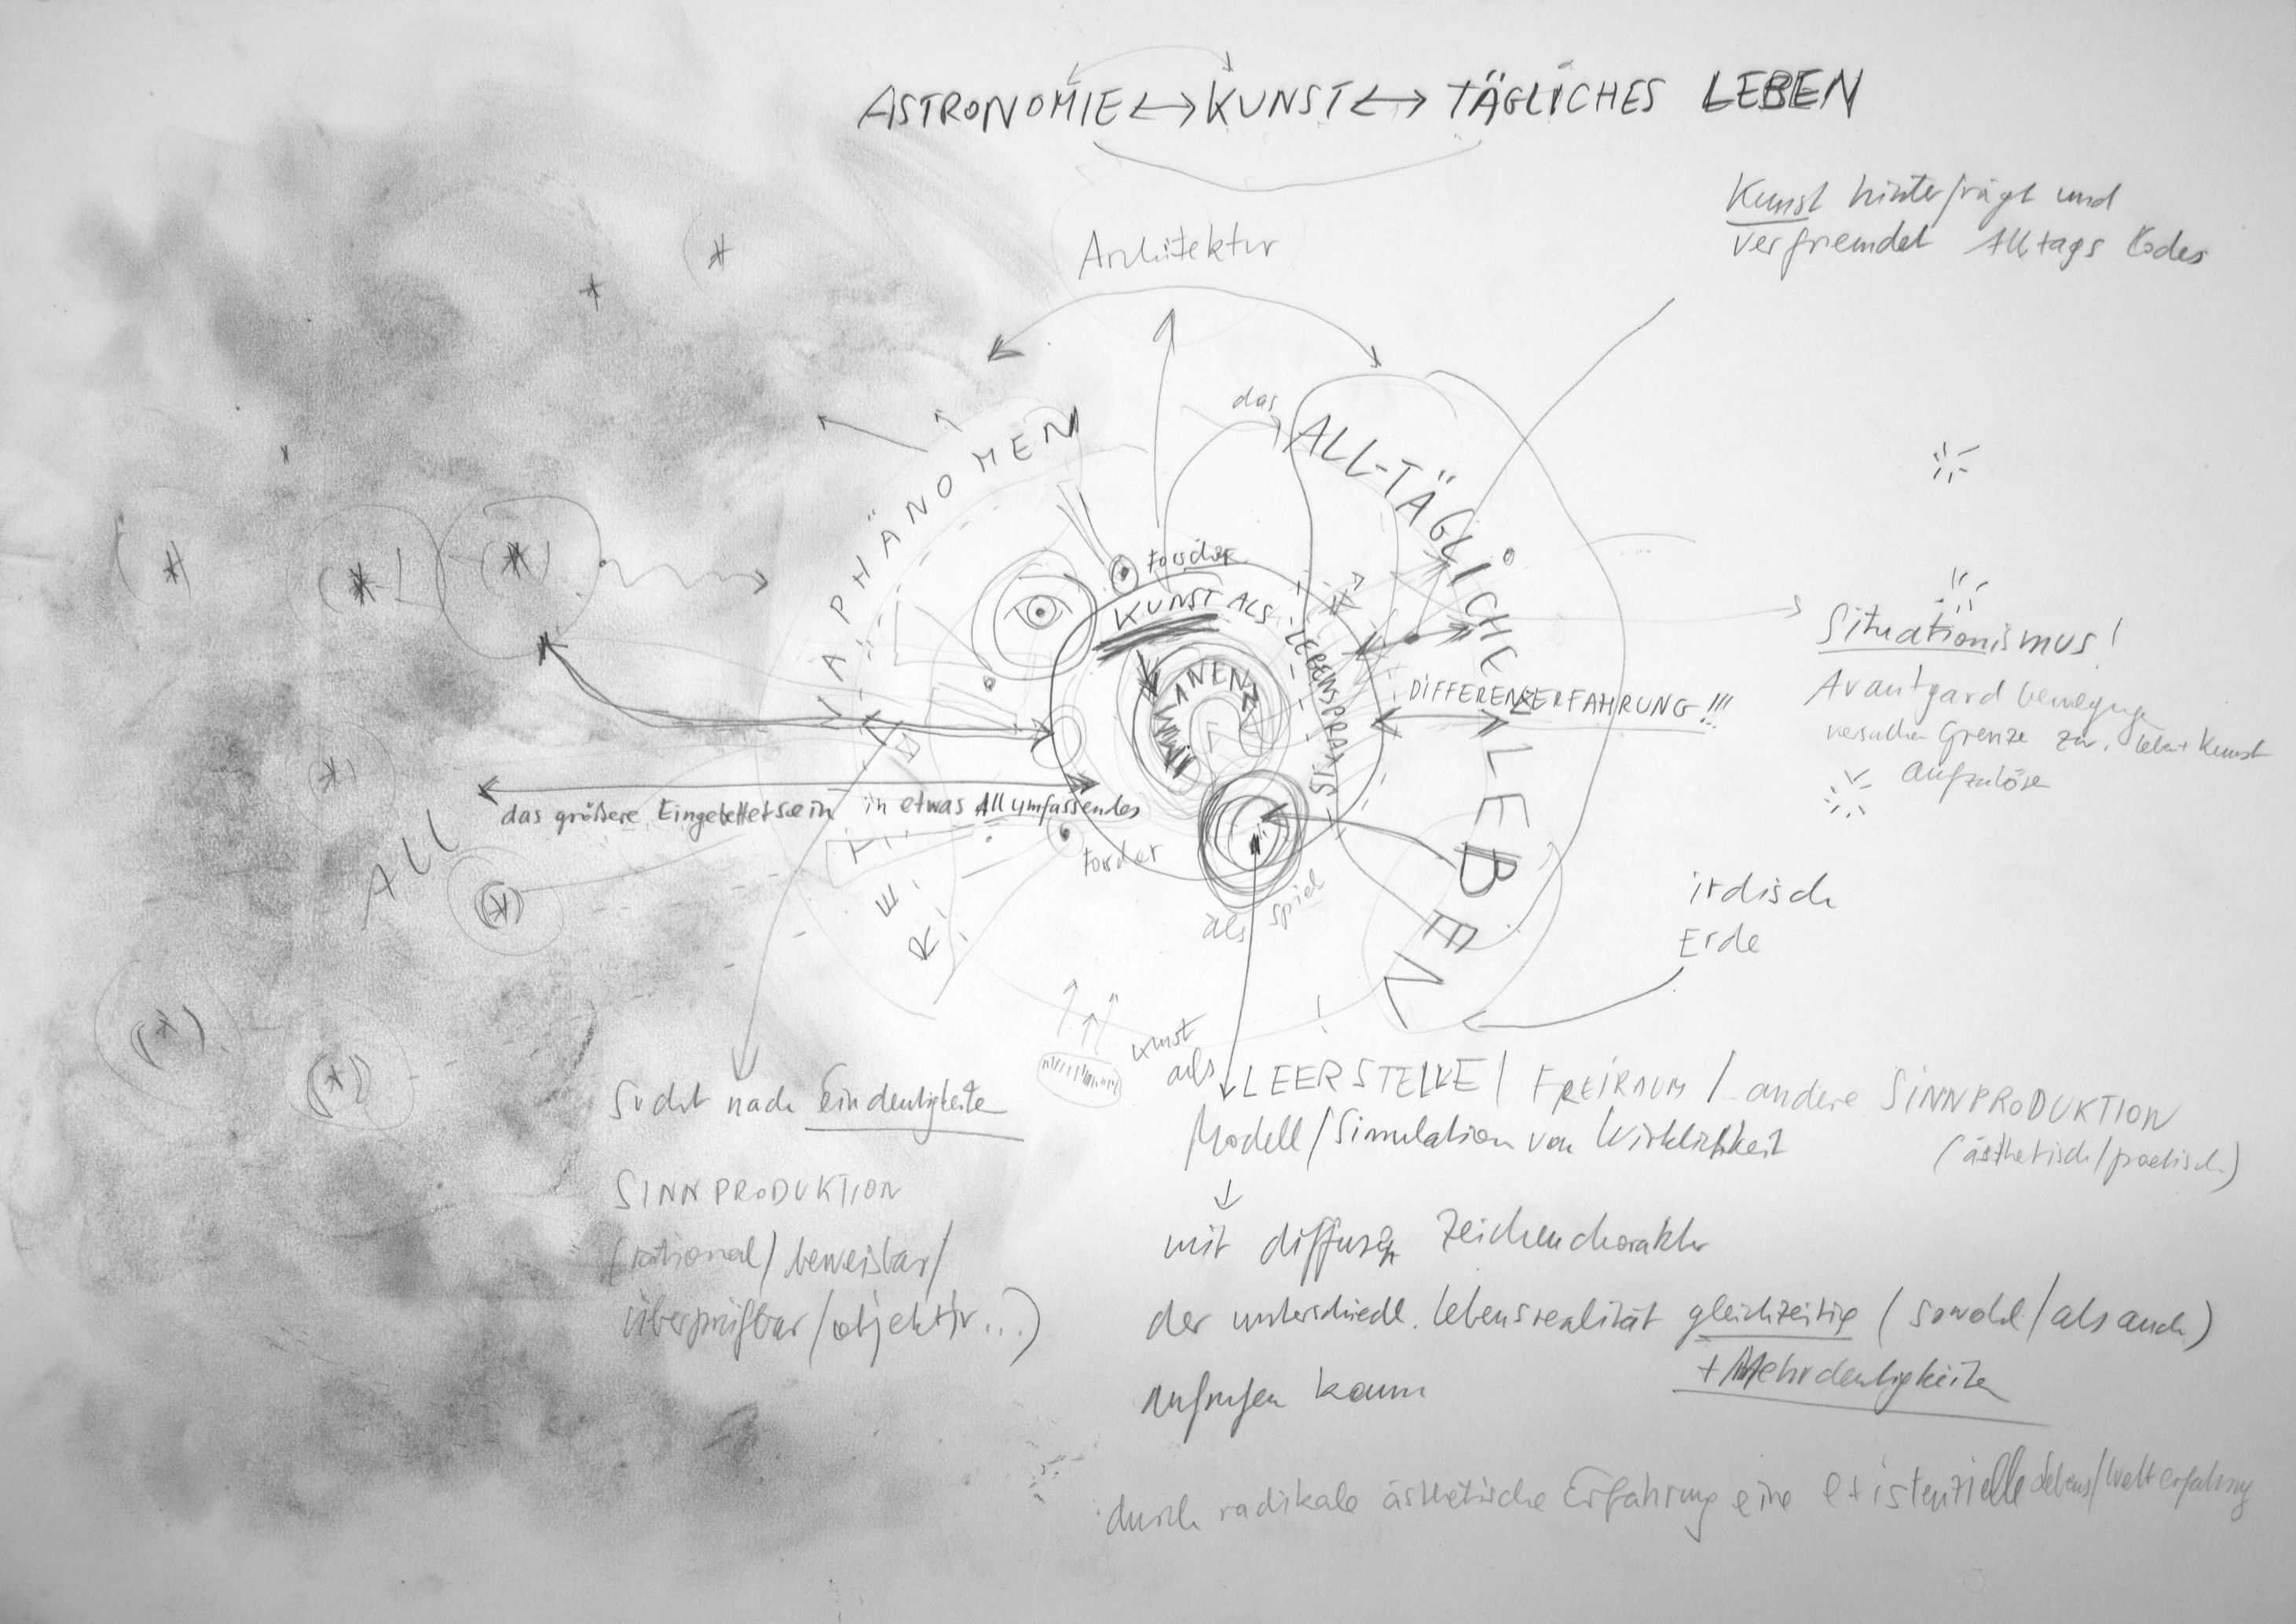 ASTRONOMIE ↔ KUNST ↔ TÄGLICHES LEBEN
Kunst hinterfrägt und
verfremdet Alltags Codes
Architektur
das
ALL-TÄGLICHE LEBEN
PHÄNOMEN
Forscher
KUNST ALS LEBENSPRAXIS
IMMANENZ
DIFFERENZERFAHRUNG!!!
Situationismus!
Avantgard bewegung
versuchen Grenze zw. Leben + Kunst
aufzulösen
das größere Eingebettetsein in etwas Allumfassendes
ALL
Forscher
als Spiel
irdisch
Erde
Kunst
als
LEERSTELLE / FREIRAUM / andere SINNPRODUKTION
(ästhetisch/poetisch)
Modell/Simulation von Wirklichkeit
Sucht nach Eindeutigkeiten
SINNPRODUKTION
(rational/beweisbar/
überprüfbar/objektiv...)
mit diffusen Zeichencharakter
der unterschiedl. Lebensrealität gleichzeitig (sowohl/als auch)
+ Mehrdeutigkeiten
aufrufen kann
durch radikale ästhetische Erfahrung eine existenzielle Lebens/Welterfahrung